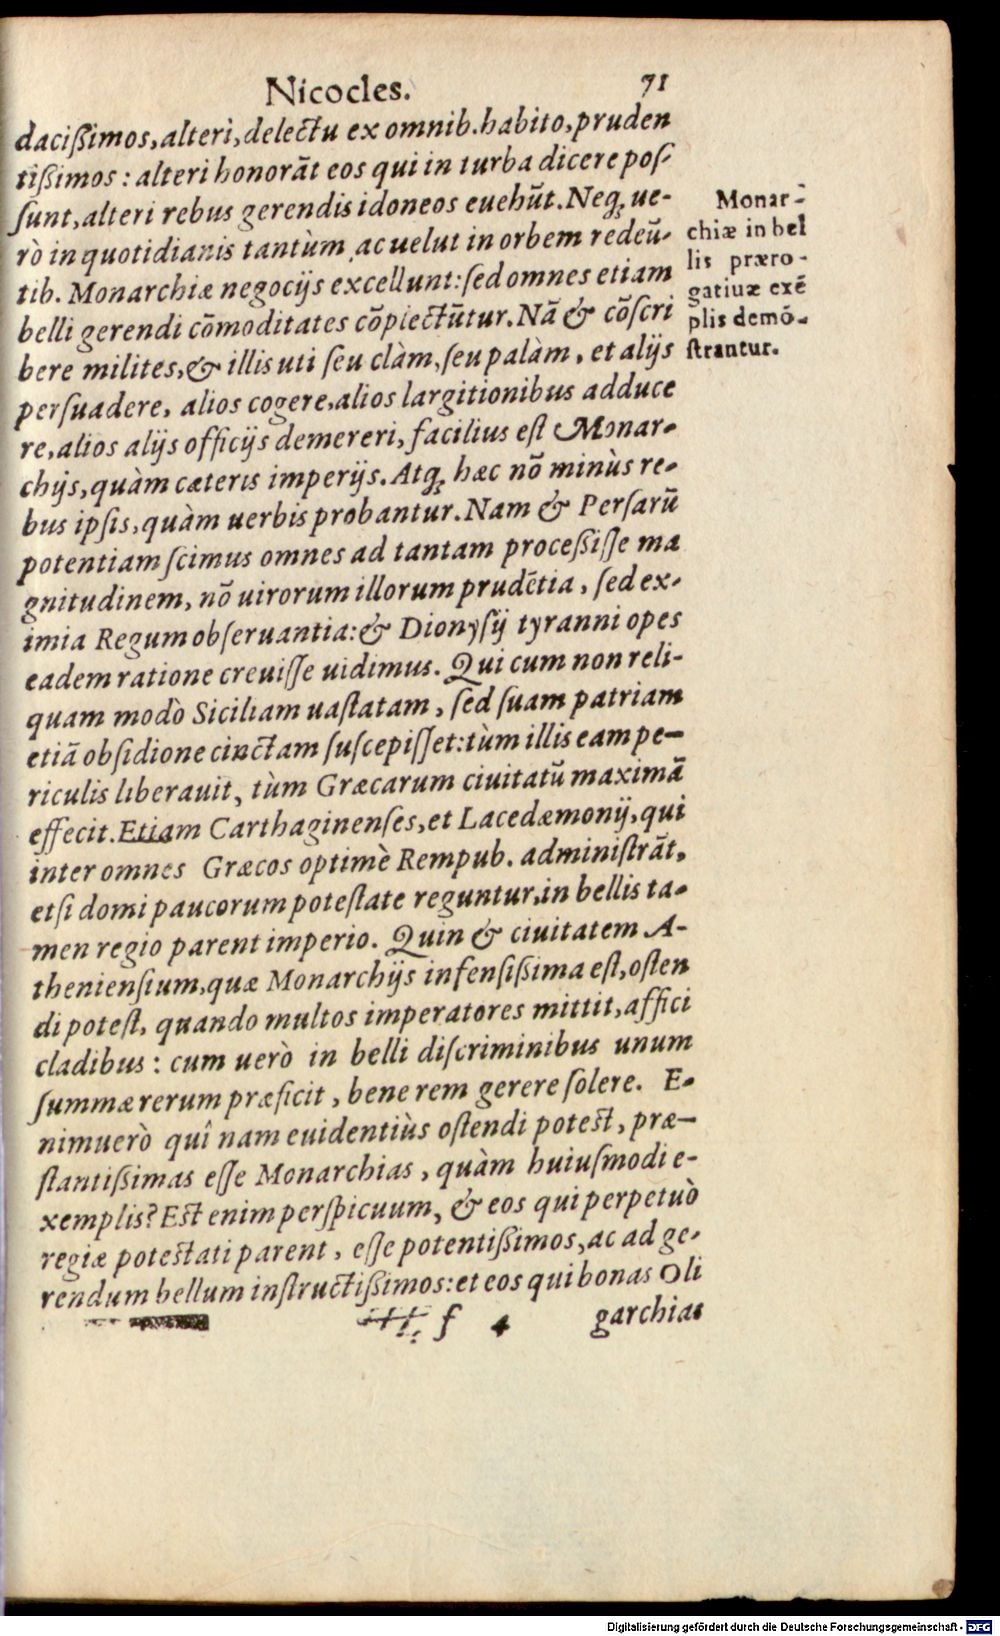 Nicocles. 71
dacißimos, alteri, delectu ex omnib. habito, pruden
tißimos: alteri honorāt eos qui in turba dicere poſ-
ſunt, alteri rebus gerendis idoneos euehūt. Neq; ue-
rò in quotidianis tantùm ac uelut in orbem redeū-
tib. Monarchiæ negocijs excellunt: ſed omnes etiam
belli gerendi cōmoditates cōplectūtur. Nā & cōſcri
bere milites, & illis uti ſeu clàm, ſeu palàm, et alijs
perſuadere, alios cogere, alios largitionibus adduce
re, alios alijs officijs demereri, facilius eſt Monar-
chijs, quàm cæteris imperijs. Atq; hæc nō minùs re-
bus ipſis, quàm uerbis probantur. Nam & Perſarū
potentiam ſcimus omnes ad tantam proceßiſſe ma
gnitudinem, nō uirorum illorum prudētia, ſed ex-
imia Regum obſeruantia: & Dionyſij tyranni opes
eadem ratione creuiſſe uidimus. Qui cum non reli-
quam modò Siciliam uaſtatam, ſed ſuam patriam
etiā obſidione cinctam ſuſcepiſſet: tùm illis eam pe-
riculis liberauit, tùm Græcarum ciuitatū maximā
effecit. Etiam Carthaginenſes, et Lacedæmonij, qui
inter omnes Græcos optimè Rempub. adminiſtrāt,
etſi domi paucorum poteſtate reguntur, in bellis ta-
men regio parent imperio. Quin & ciuitatem A-
thenienſium, quæ Monarchijs infenſißima eſt, oſten
di poteſt, quando multos imperatores mittit, affici
cladibus: cum uerò in belli diſcriminibus unum
ſummæ rerum præficit, bene rem gerere ſolere. E-
nimuerò quî nam euidentiùs oſtendi poteſt, præ-
ſtantißimas eſſe Monarchias, quàm huiuſmodi e-
xemplis? Eſt enim perſpicuum, & eos qui perpetuò
regiæ poteſtati parent, eſſe potentißimos, ac ad ge-
rendum bellum inſtructißimos: et eos qui bonas Oli
f 4 garchias
Monar-
chiæ in bel
lis præro-
gatiuæ exē
plis demō-
ſtrantur.
Digitalisierung gefördert durch die Deutsche Forschungsgemeinschaft - DFG